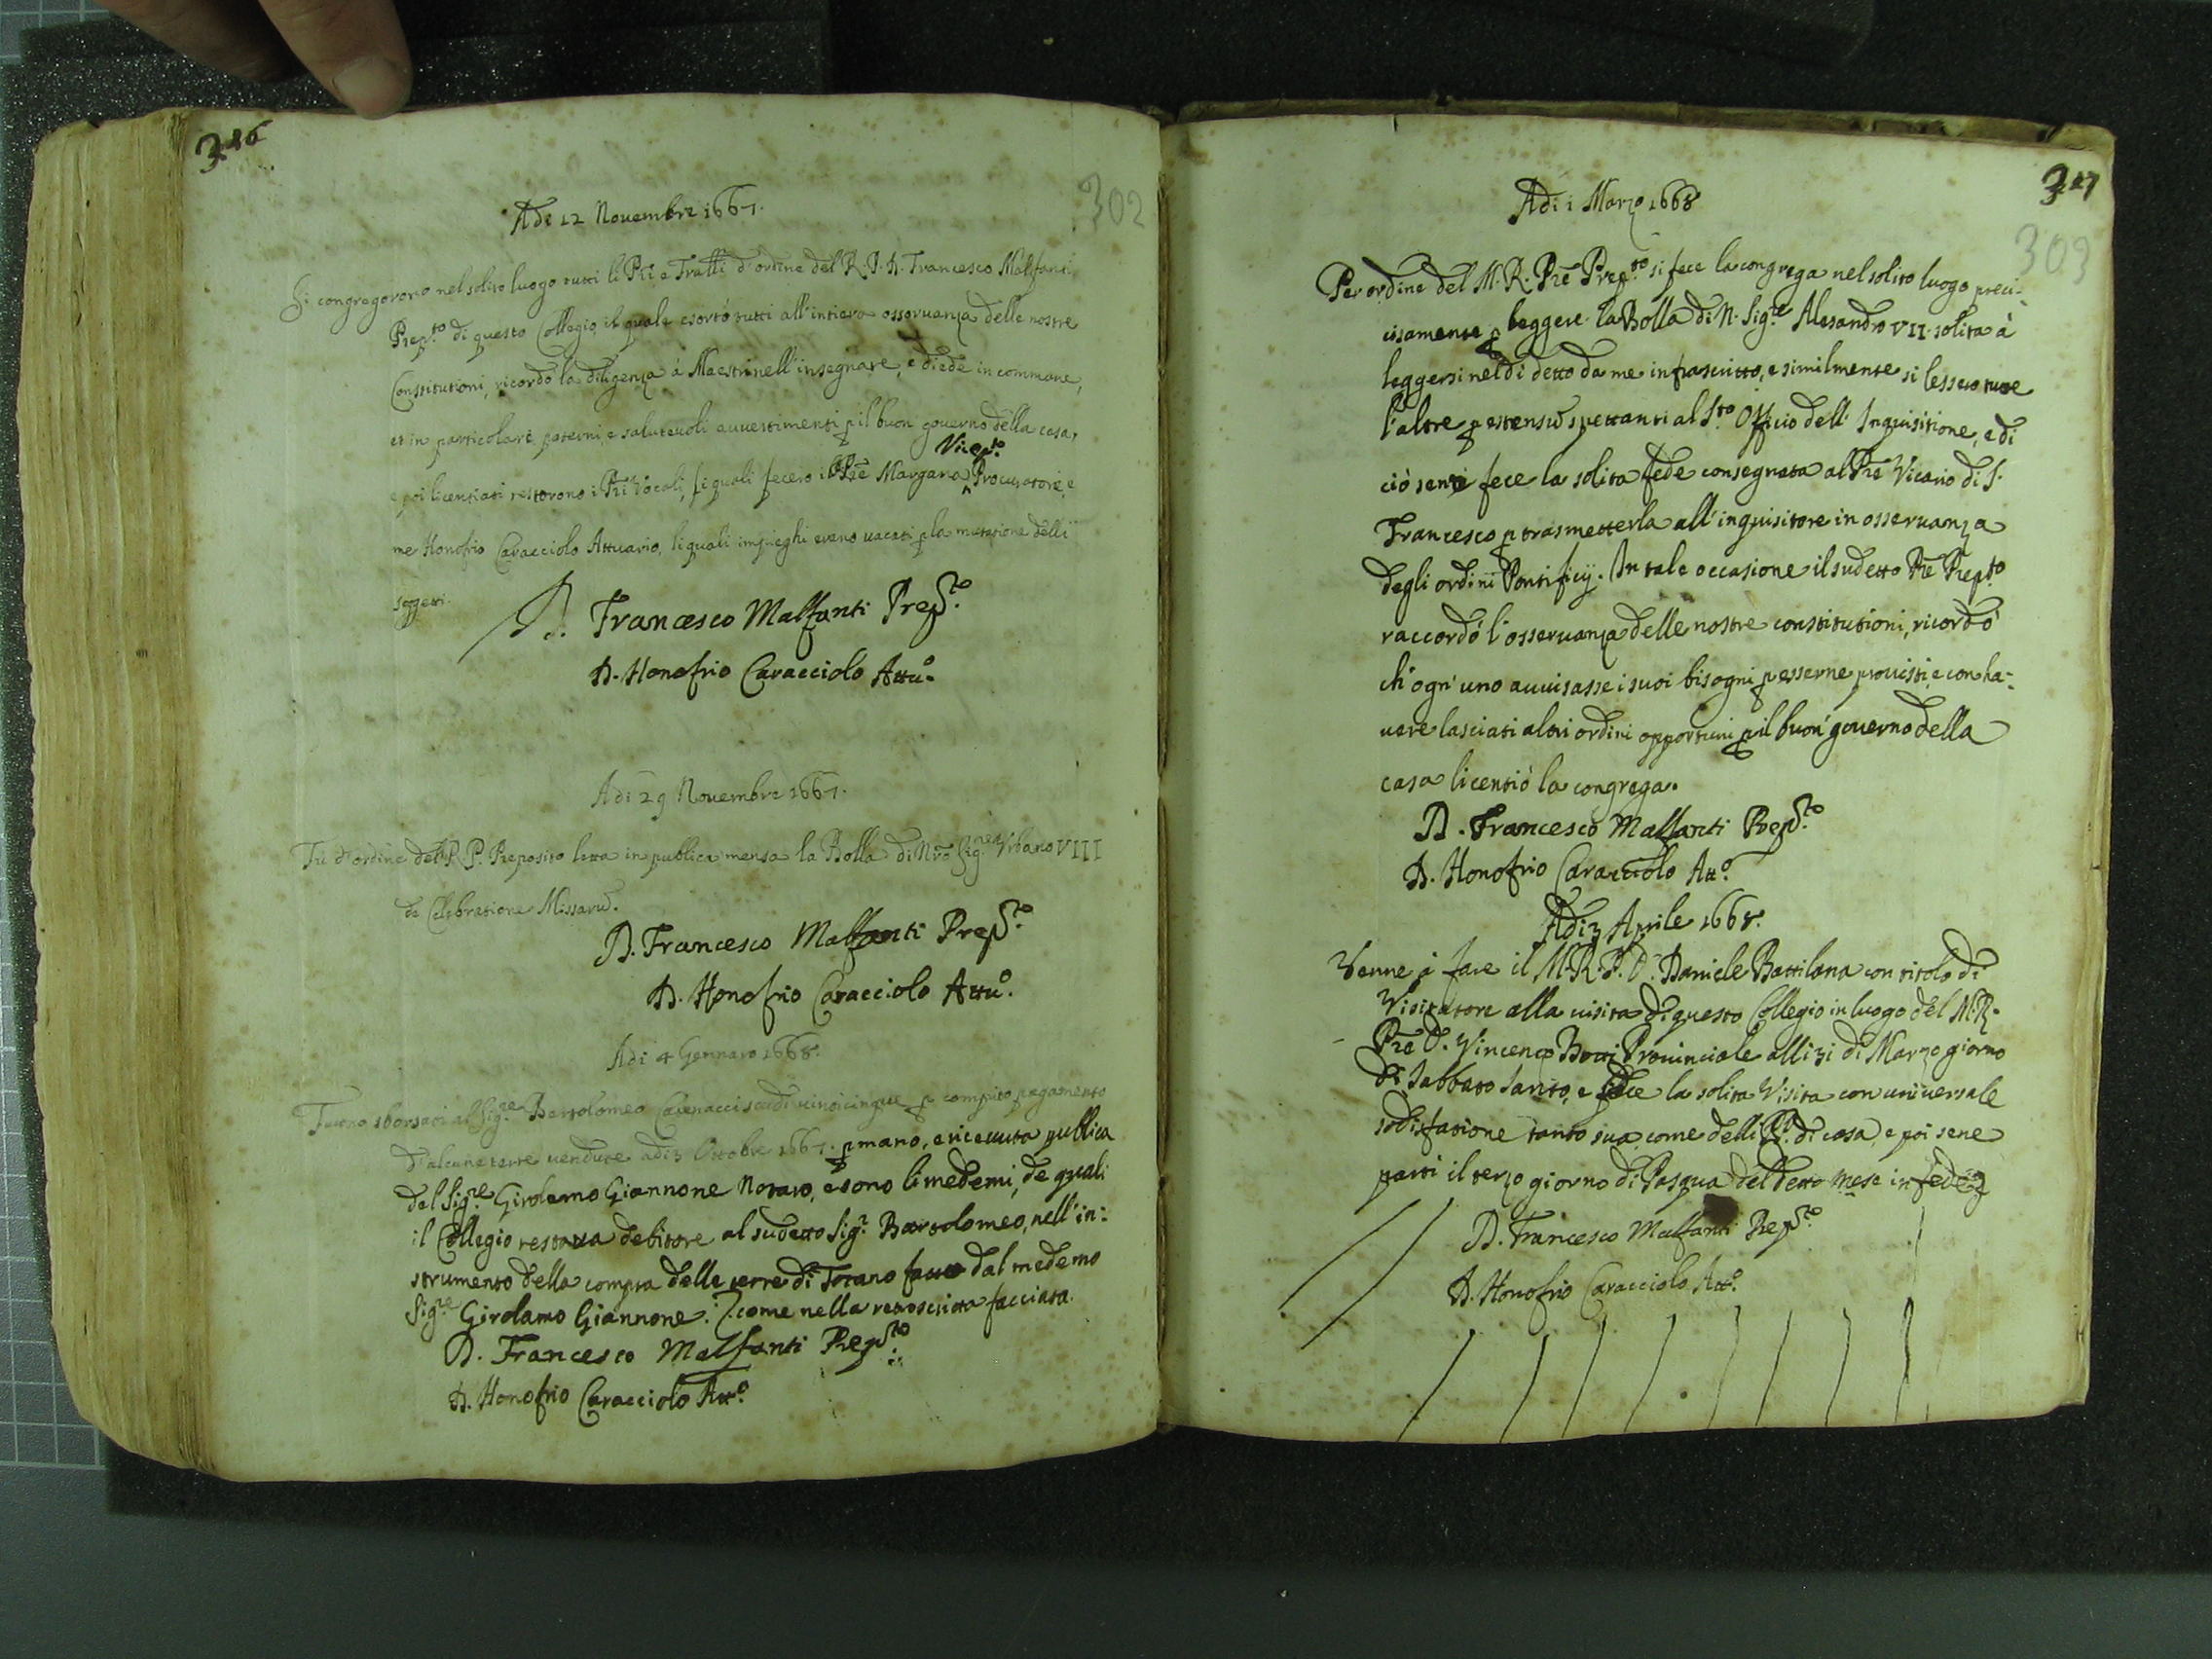 316
302
Adi 12 Nouembre 1667.
Si congregorono nel solito luogo tutti li Pri e Fratti d'ordine del R. P. D. Francesco Malfanti
Prep.to di questo Collegio, il quale esortò tutti all'intiera osseruanza delle nostre
Constitutioni, ricordò la diligenza à Maestri nell'insegnare, e diede in commune,
et in particolare paterni, e saluteuoli auuertimenti p il buon gouerno della casa,
Vicep.to
e poi licentiati restorono i Pri Vocali, li quali fecero il Pre Margana Procuratore, e
me Honofrio Caracciolo Attuario, li quali impieghi erano uacati p la mutatione delli
soggetti.
D. Francesco Malfanti Prep.to
D. Honofrio Caracciolo Attu.o
Adi 29 Nouembre 1667.
Fù d'ordine del R. P. Preposito letta in publica mensa la Bolla di Nro Sig.re Vrbano VIII
de Celebratione Missarū.
D. Francesco Malfanti Prep.to
D. Honofrio Caracciolo Attu.o
Adi 4 Gennaro 1668.
Furno sborsati al Sig.re Bartolomeo Cauenacci scudi uinticinque p compito pagamento
d'alcune terre uendute adi 3 Ottobre 1667. p mano, e riceuuta publica
del Sig.re Girolamo Giannone Notaro, e sono li medemi, de quali
il Collegio restaua debitore al sudetto Sig.r Bartolomeo, nell'in:
strumento della compra delle terre di Torano fatto dal medemo
Sig.re Girolamo Giannone. come nella retroscritta facciata.
D. Francesco Malfanti Prep.to
D. Honofrio Caracciolo Att.o
317
303
Adi 1 Marzo 1668
Per ordine del M. R. Pre Prep.to si fece la congrega nel solito luogo preci-
cisamente p leggere la Bolla di N. Sig.re Alesandro VII. solita à
leggersi nel dì detto da me infrascritto, e similmente si lessero tutte
l'altre p estensū spettanti al S.to Officio dell'Inquisitione, e di
ciò sene fece la solita fede consegnata al Pre Vicario di S.
Francesco p trasmetterla all'inquisitore in osseruanza
degli ordini Pontificij. In tale occasione il sudetto Pre Prep.to
raccordò l'osseruanza delle nostre constitutioni, ricordò
ch'ogn'uno auuisasse i suoi bisogni p esserne prouisti, e con ha-
uere lasciati altri ordini opportuni p il buon gouerno della
casa licentiò la congrega.
D. Francesco Malfanti Prep.to
D. Honofrio Caracciolo Att.o
Adi 3 Aprile 1668.
Venne à fare il M. R. P. D. Daniele Battilana con titolo di
Visitatore alla uisita di questo Collegio in luogo del M. R.
Pre D. Vincenzo Prouinciale alli 31 di Marzo giorno
di Sabbato Santo, e fece la solita Visita con uniuersale
sodisfatione tanto sua, come delli PP. di casa, e poi sene
partì il terzo giorno di Pasqua del detto mese in fede
D. Francesco Malfanti Prep.to
D. Honofrio Caracciolo Att.o